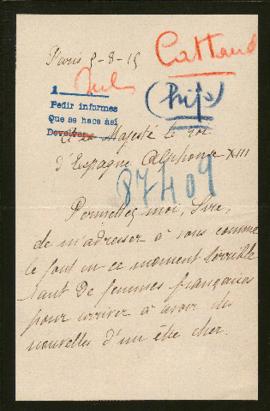 Paris 5-8-15
Cattaud
1
Pedir informes
Que se hace así
(Prisº)
A sa Majesté le roi
d'Espagne Alphonse XIII
87409
Permettez moi, Sire,
de m'adresser à vous comme
le font en ce moment terrible
tant de femmes françaises
pour arriver à avoir des
nouvelles d'un être cher.